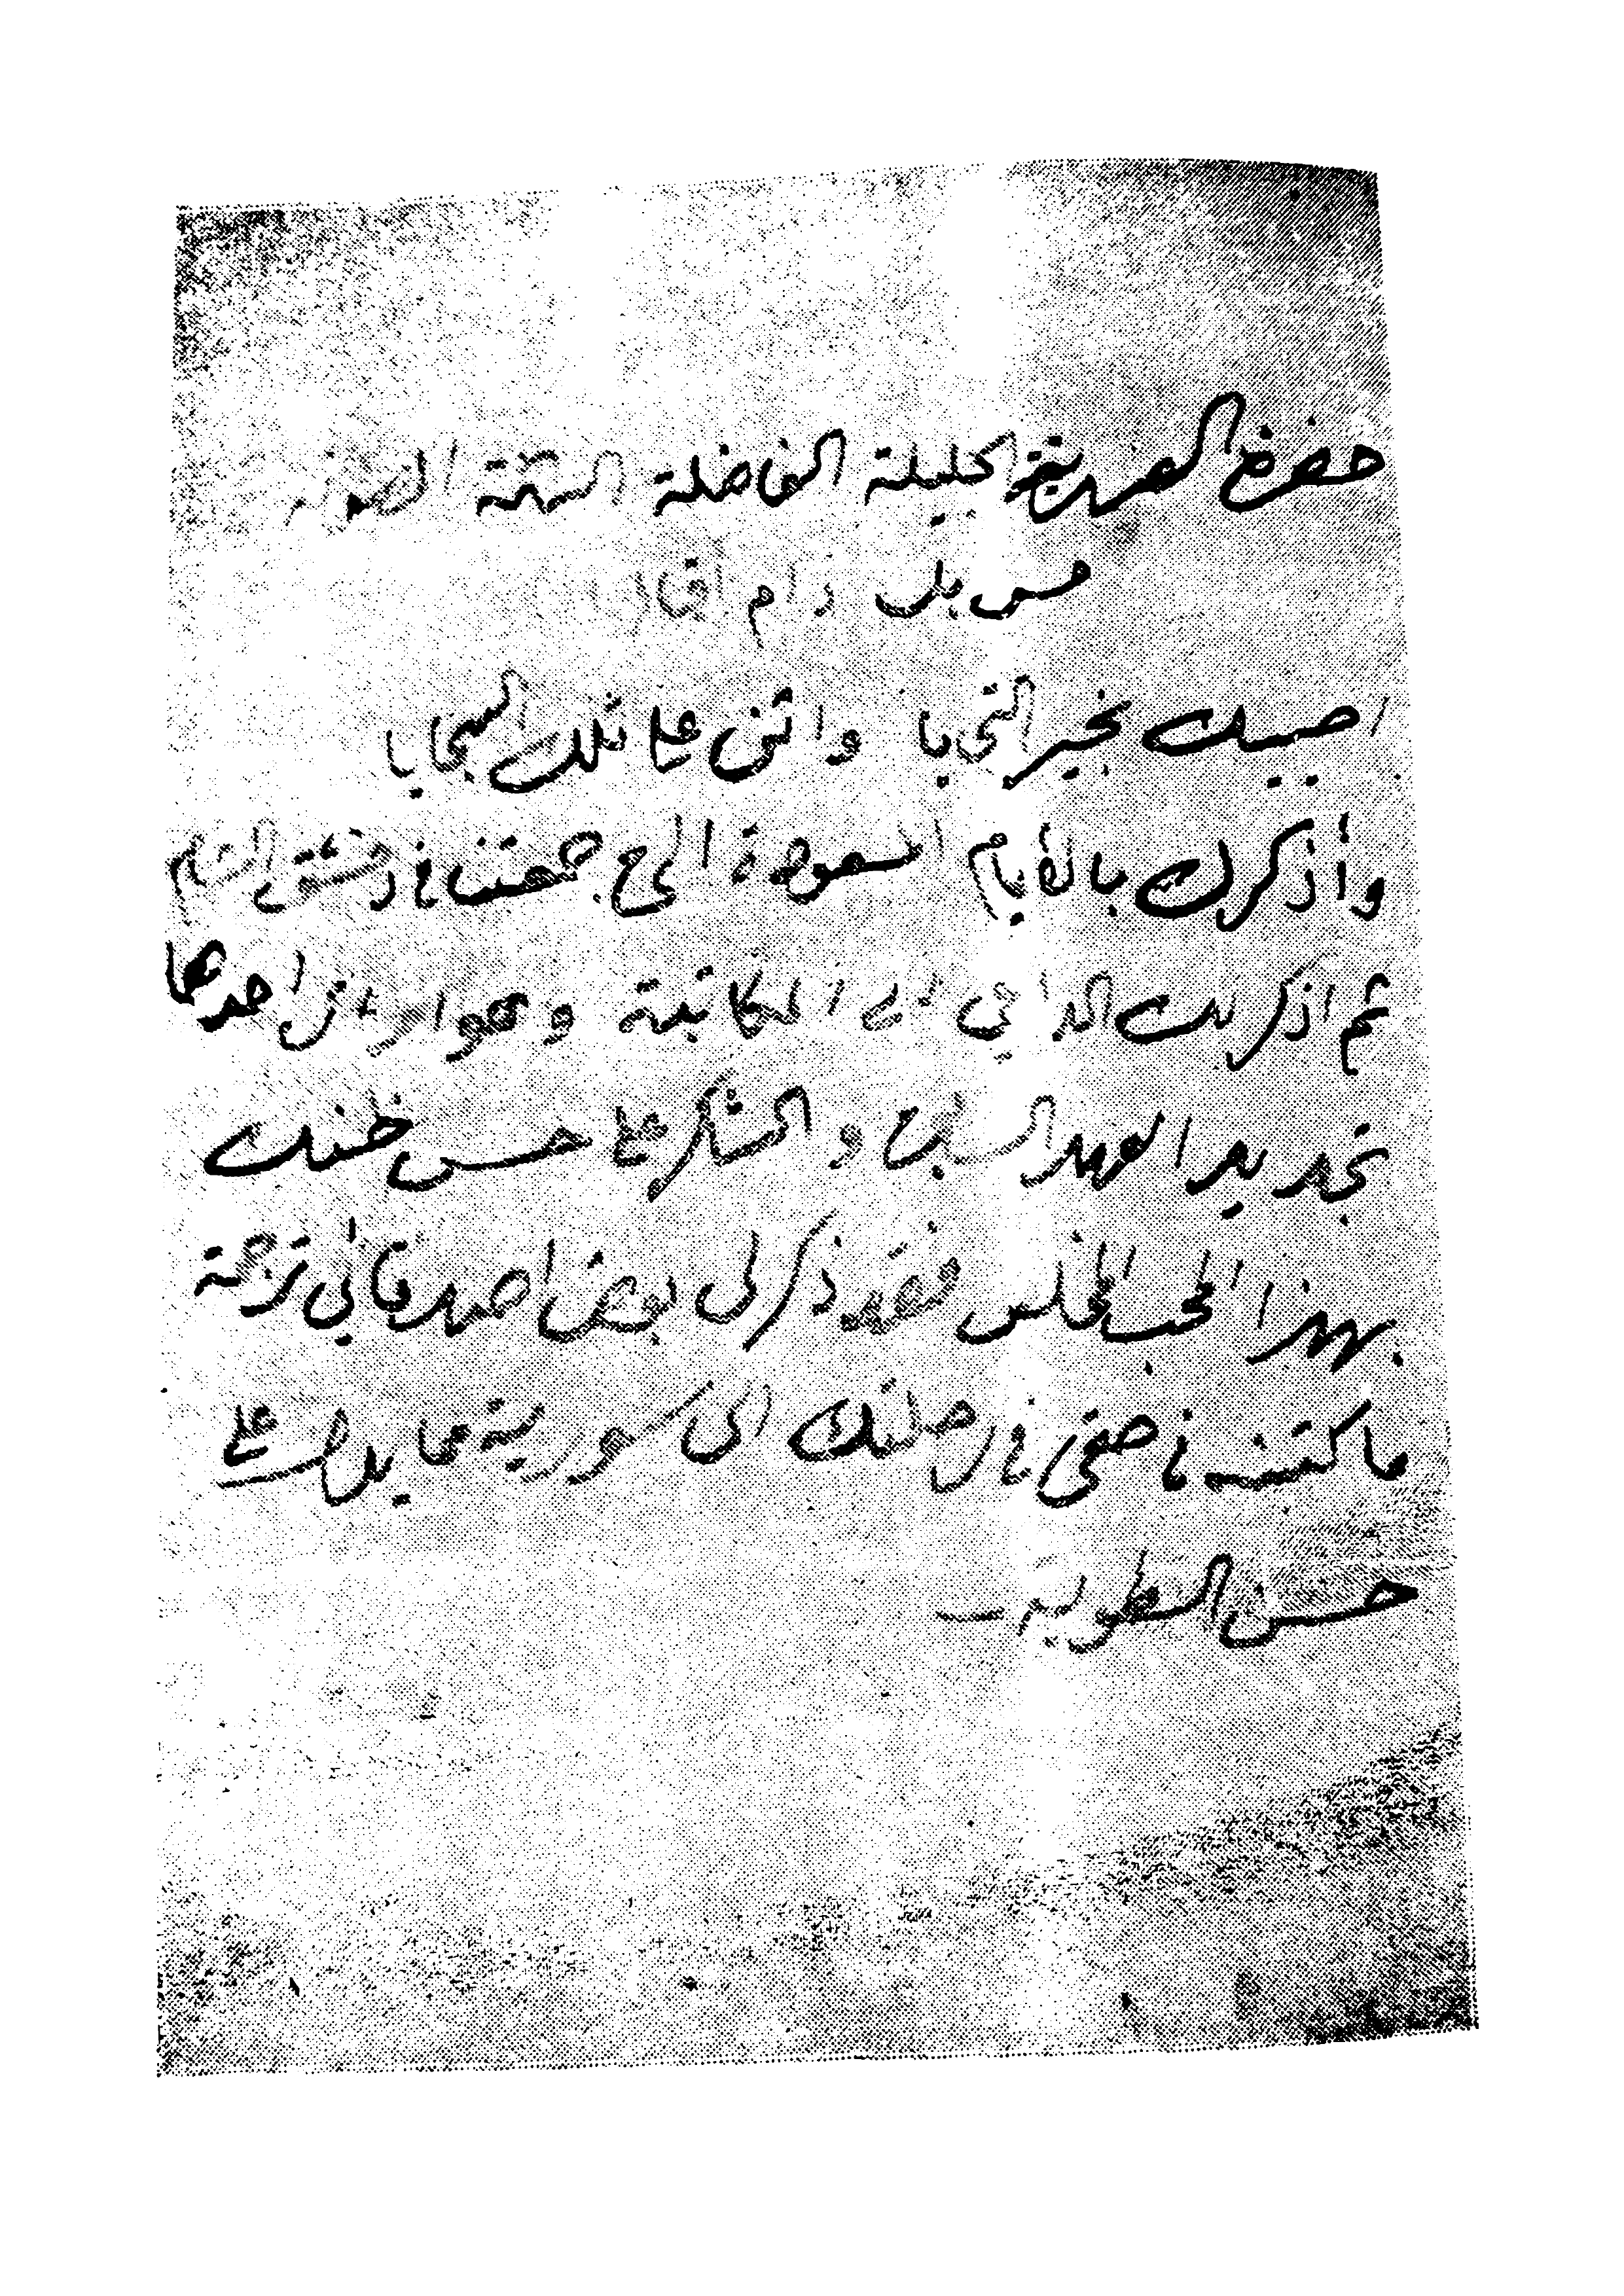 حضرة الصديقة الجليلة الفاضلة الشهمة
مس بل دام
احييك بخير التحايا واثني على تلك السجايا
وأذكرك بالأيام السعيدة التي جمعتنا في دمشق الشام
ثم اذكر لك الداعي الى المكاتبة وهو امران احدهما
تجديد العهد السابق والشكر على حسن ظنك
بهذا المحب المخلص فقد ذكر لي بعض اصدقائي ترجمة
ما كتبته في حقي في رحلتك الى سورية مما يدل على
حسن الطوية